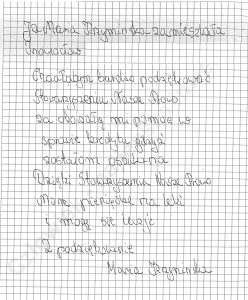 Ja Maria Szymińska zamieszkała
Inowrocław
Chciałabym bardzo podziękować
Stowarzyszeniu Nasze Prawo
za okazaną mi pomoc w
sprawie kredytu gdyż
zostałam oszukana
Dzięki Stowarzyszeniu Nasze Prawo
Mam pieniądze na leki
i mogę się leczyć
Z podziękowaniem
Maria Szymińska